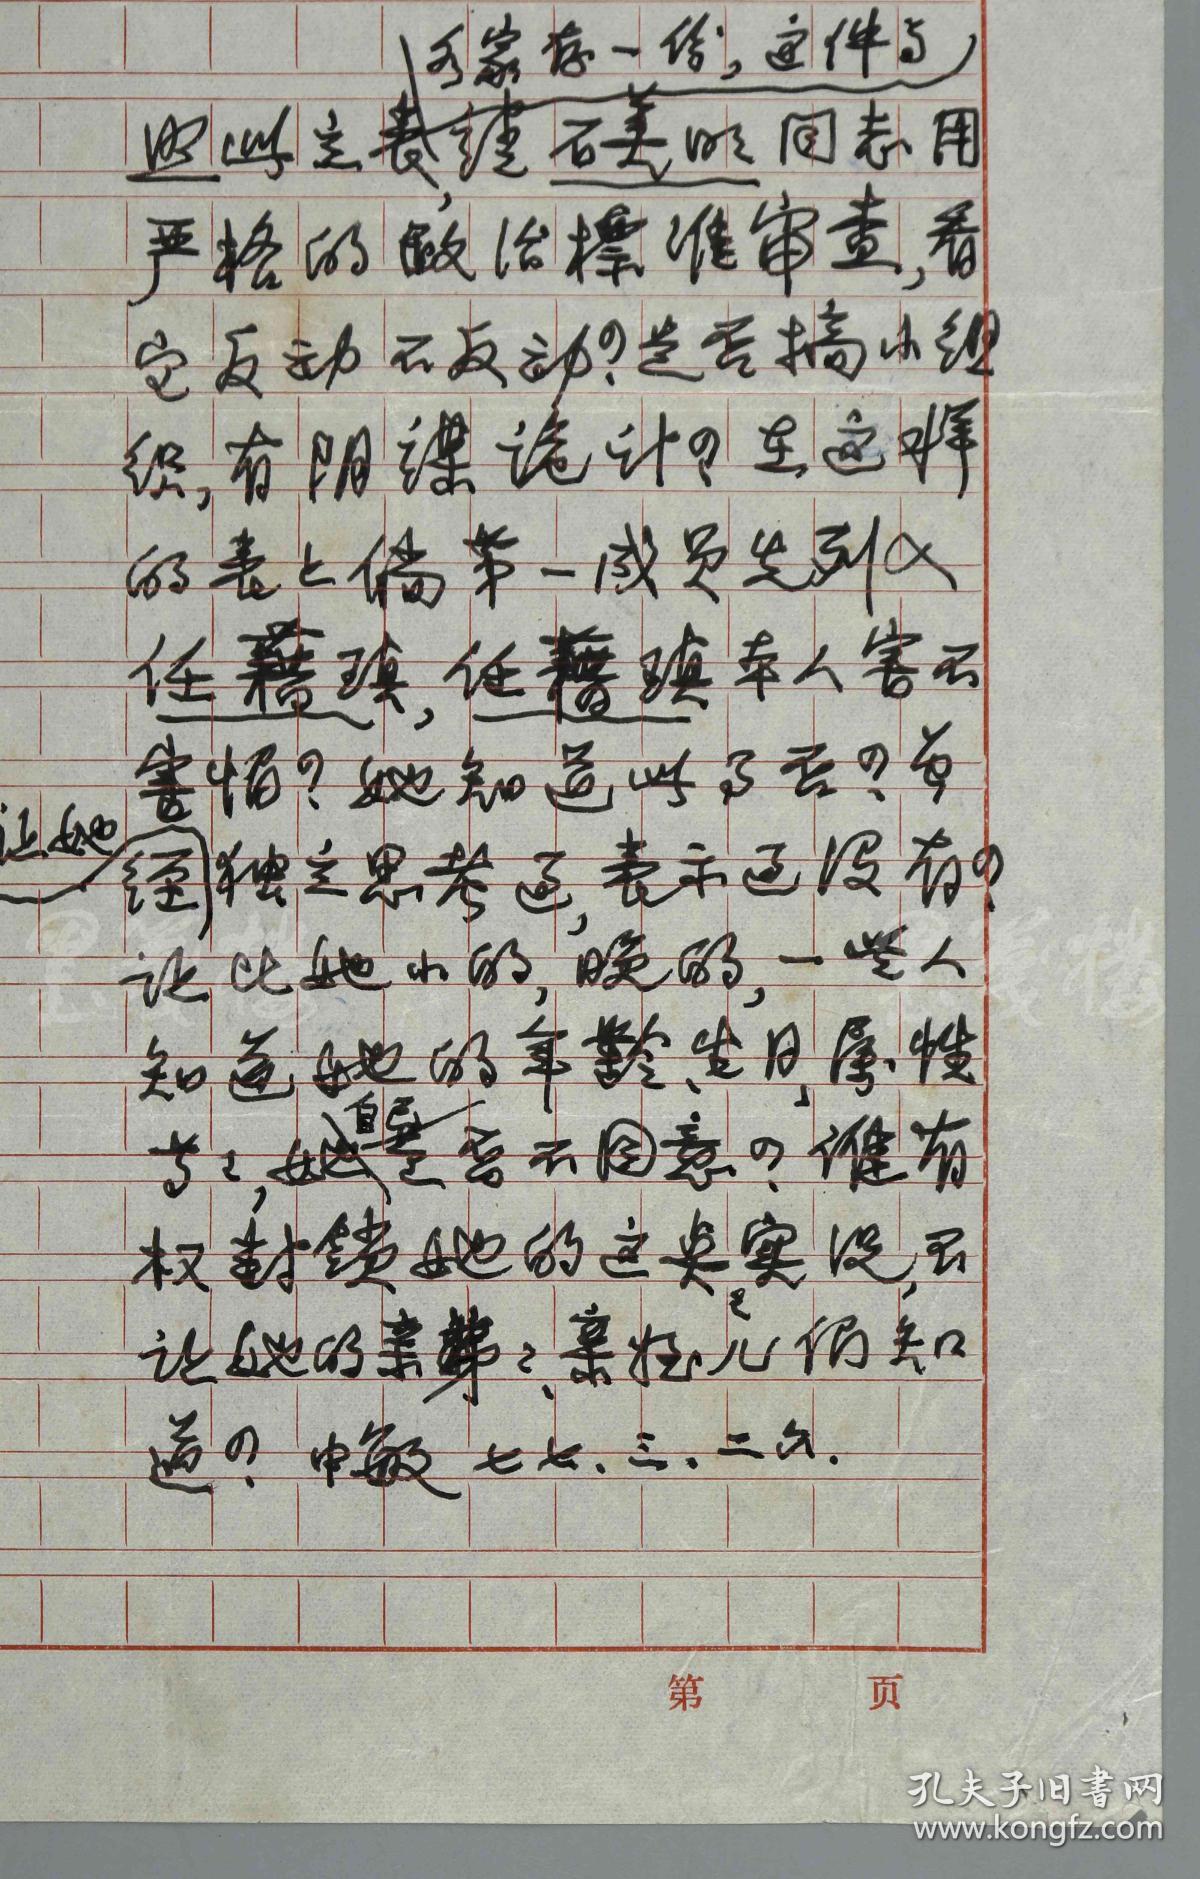 各家存一份，这件事
照此立表，请石美明同志用
严格的政治標准审查，看
它反动不反动？是否搞小组
织，有阴谋诡计？在这样
的表上倘第一成员先列入
任藉瑱，任藉瑱本人害不
害怕？她知道此事否？曾
让她
经独立思考过，表示过没有？
让比她小的，晚的，一些人
知道她的年龄、生日，属性
等等，她自己是否不同意？谁有
权封锁她的这类实况，不
让她的亲弟弟、亲侄儿们知
道？中敏 七七．三．二六．
第 页
孔夫子旧书网
www.kongfz.com